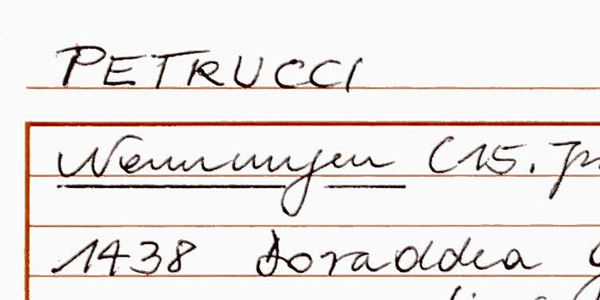 PETRUCCI
Nennungen (15. J
1438 Doraddea